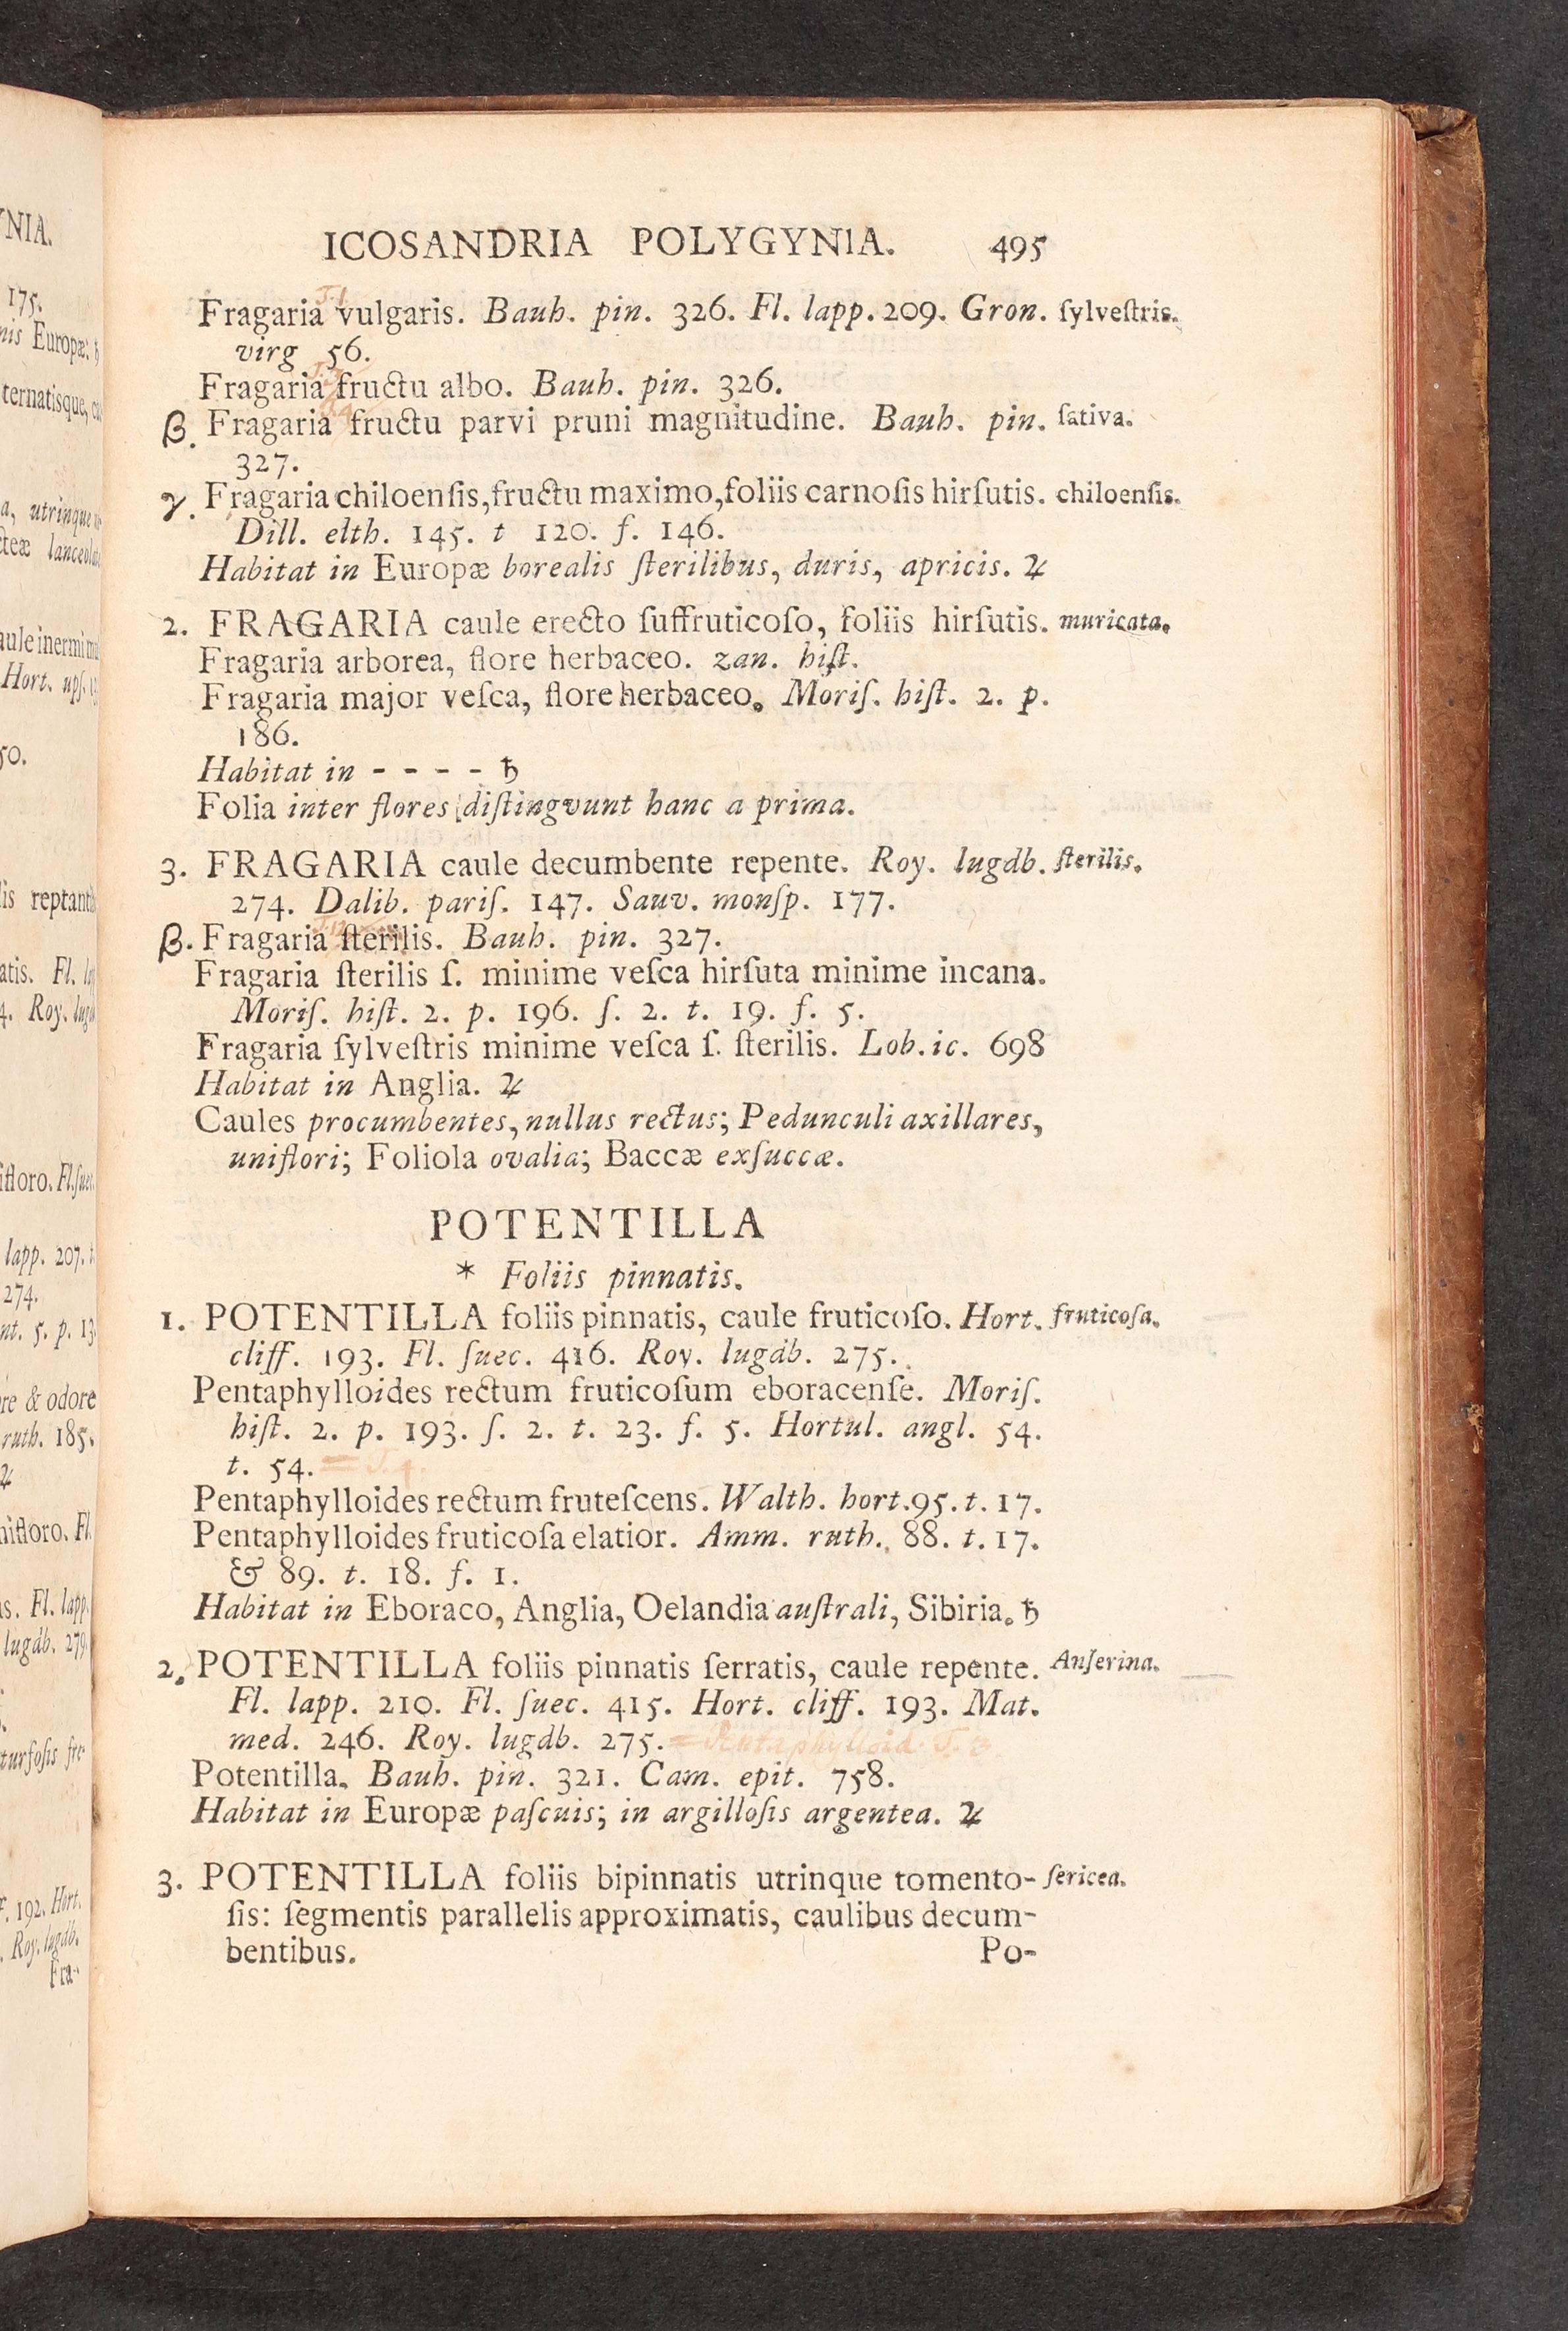 ICOSANDRIA POLYGYNIA. 495
Fragaria vulgaris. Bauh. pin. 326. Fl. lapp. 209. Gron. ſylveſtris.
virg 56.
Fragaria fructu albo. Bauh. pin. 326.
β. Fragaria fructu parvi pruni magnitudine. Bauh. pin. ſativa.
327.
γ. Fragaria chiloenſis, fructu maximo, foliis carnoſis hirſutis. chiloenſis.
Dill. elth. 145. t 120. f. 146.
Habitat in Europæ borealis ſterilibus, duris, apricis. ♃
2. FRAGARIA caule erecto ſuffruticoſo, foliis hirſutis. muricata.
Fragaria arborea, flore herbaceo. zan. hiſt.
Fragaria major veſca, flore herbaceo. Moriſ. hiſt. 2. p.
186.
Habitat in - - - - ♄
Folia inter flores diſtingvunt hanc a prima.
3. FRAGARIA caule decumbente repente. Roy. lugdb. ſterilis.
274. Dalib. pariſ. 147. Sauv. monſp. 177.
β. Fragaria ſterilis. Bauh. pin. 327.
Fragaria ſterilis ſ. minime veſca hirſuta minime incana.
Moriſ. hiſt. 2. p. 196. ſ. 2. t. 19. f. 5.
Fragaria ſylveſtris minime veſca ſ. ſterilis. Lob. ic. 698
Habitat in Anglia. ♃
Caules procumbentes, nullus rectus; Pedunculi axillares,
uniflori; Foliola ovalia; Baccæ exſuccæ.
POTENTILLA
* Foliis pinnatis.
1. POTENTILLA foliis pinnatis, caule fruticoſo. Hort. fruticoſa.
cliff. 193. Fl. ſuec. 416. Roy. lugdb. 275.
Pentaphylloides rectum fruticoſum eboracenſe. Moriſ.
hiſt. 2. p. 193. ſ. 2. t. 23. f. 5. Hortul. angl. 54.
t. 54.
Pentaphylloides rectum fruteſcens. Walth. hort. 95. t. 17.
Pentaphylloides fruticoſa elatior. Amm. ruth. 88. t. 17.
& 89. t. 18. f. 1.
Habitat in Eboraco, Anglia, Oelandia auſtrali, Sibiria. ♄
2. POTENTILLA foliis pinnatis ſerratis, caule repente. Anſerina.
Fl. lapp. 210. Fl. ſuec. 415. Hort. cliff. 193. Mat.
med. 246. Roy. lugdb. 275.
Potentilla. Bauh. pin. 321. Cam. epit. 758.
Habitat in Europæ paſcuis; in argilloſis argentea. ♃
3. POTENTILLA foliis bipinnatis utrinque tomento- ſericea.
ſis: ſegmentis parallelis approximatis, caulibus decum-
bentibus. Po-